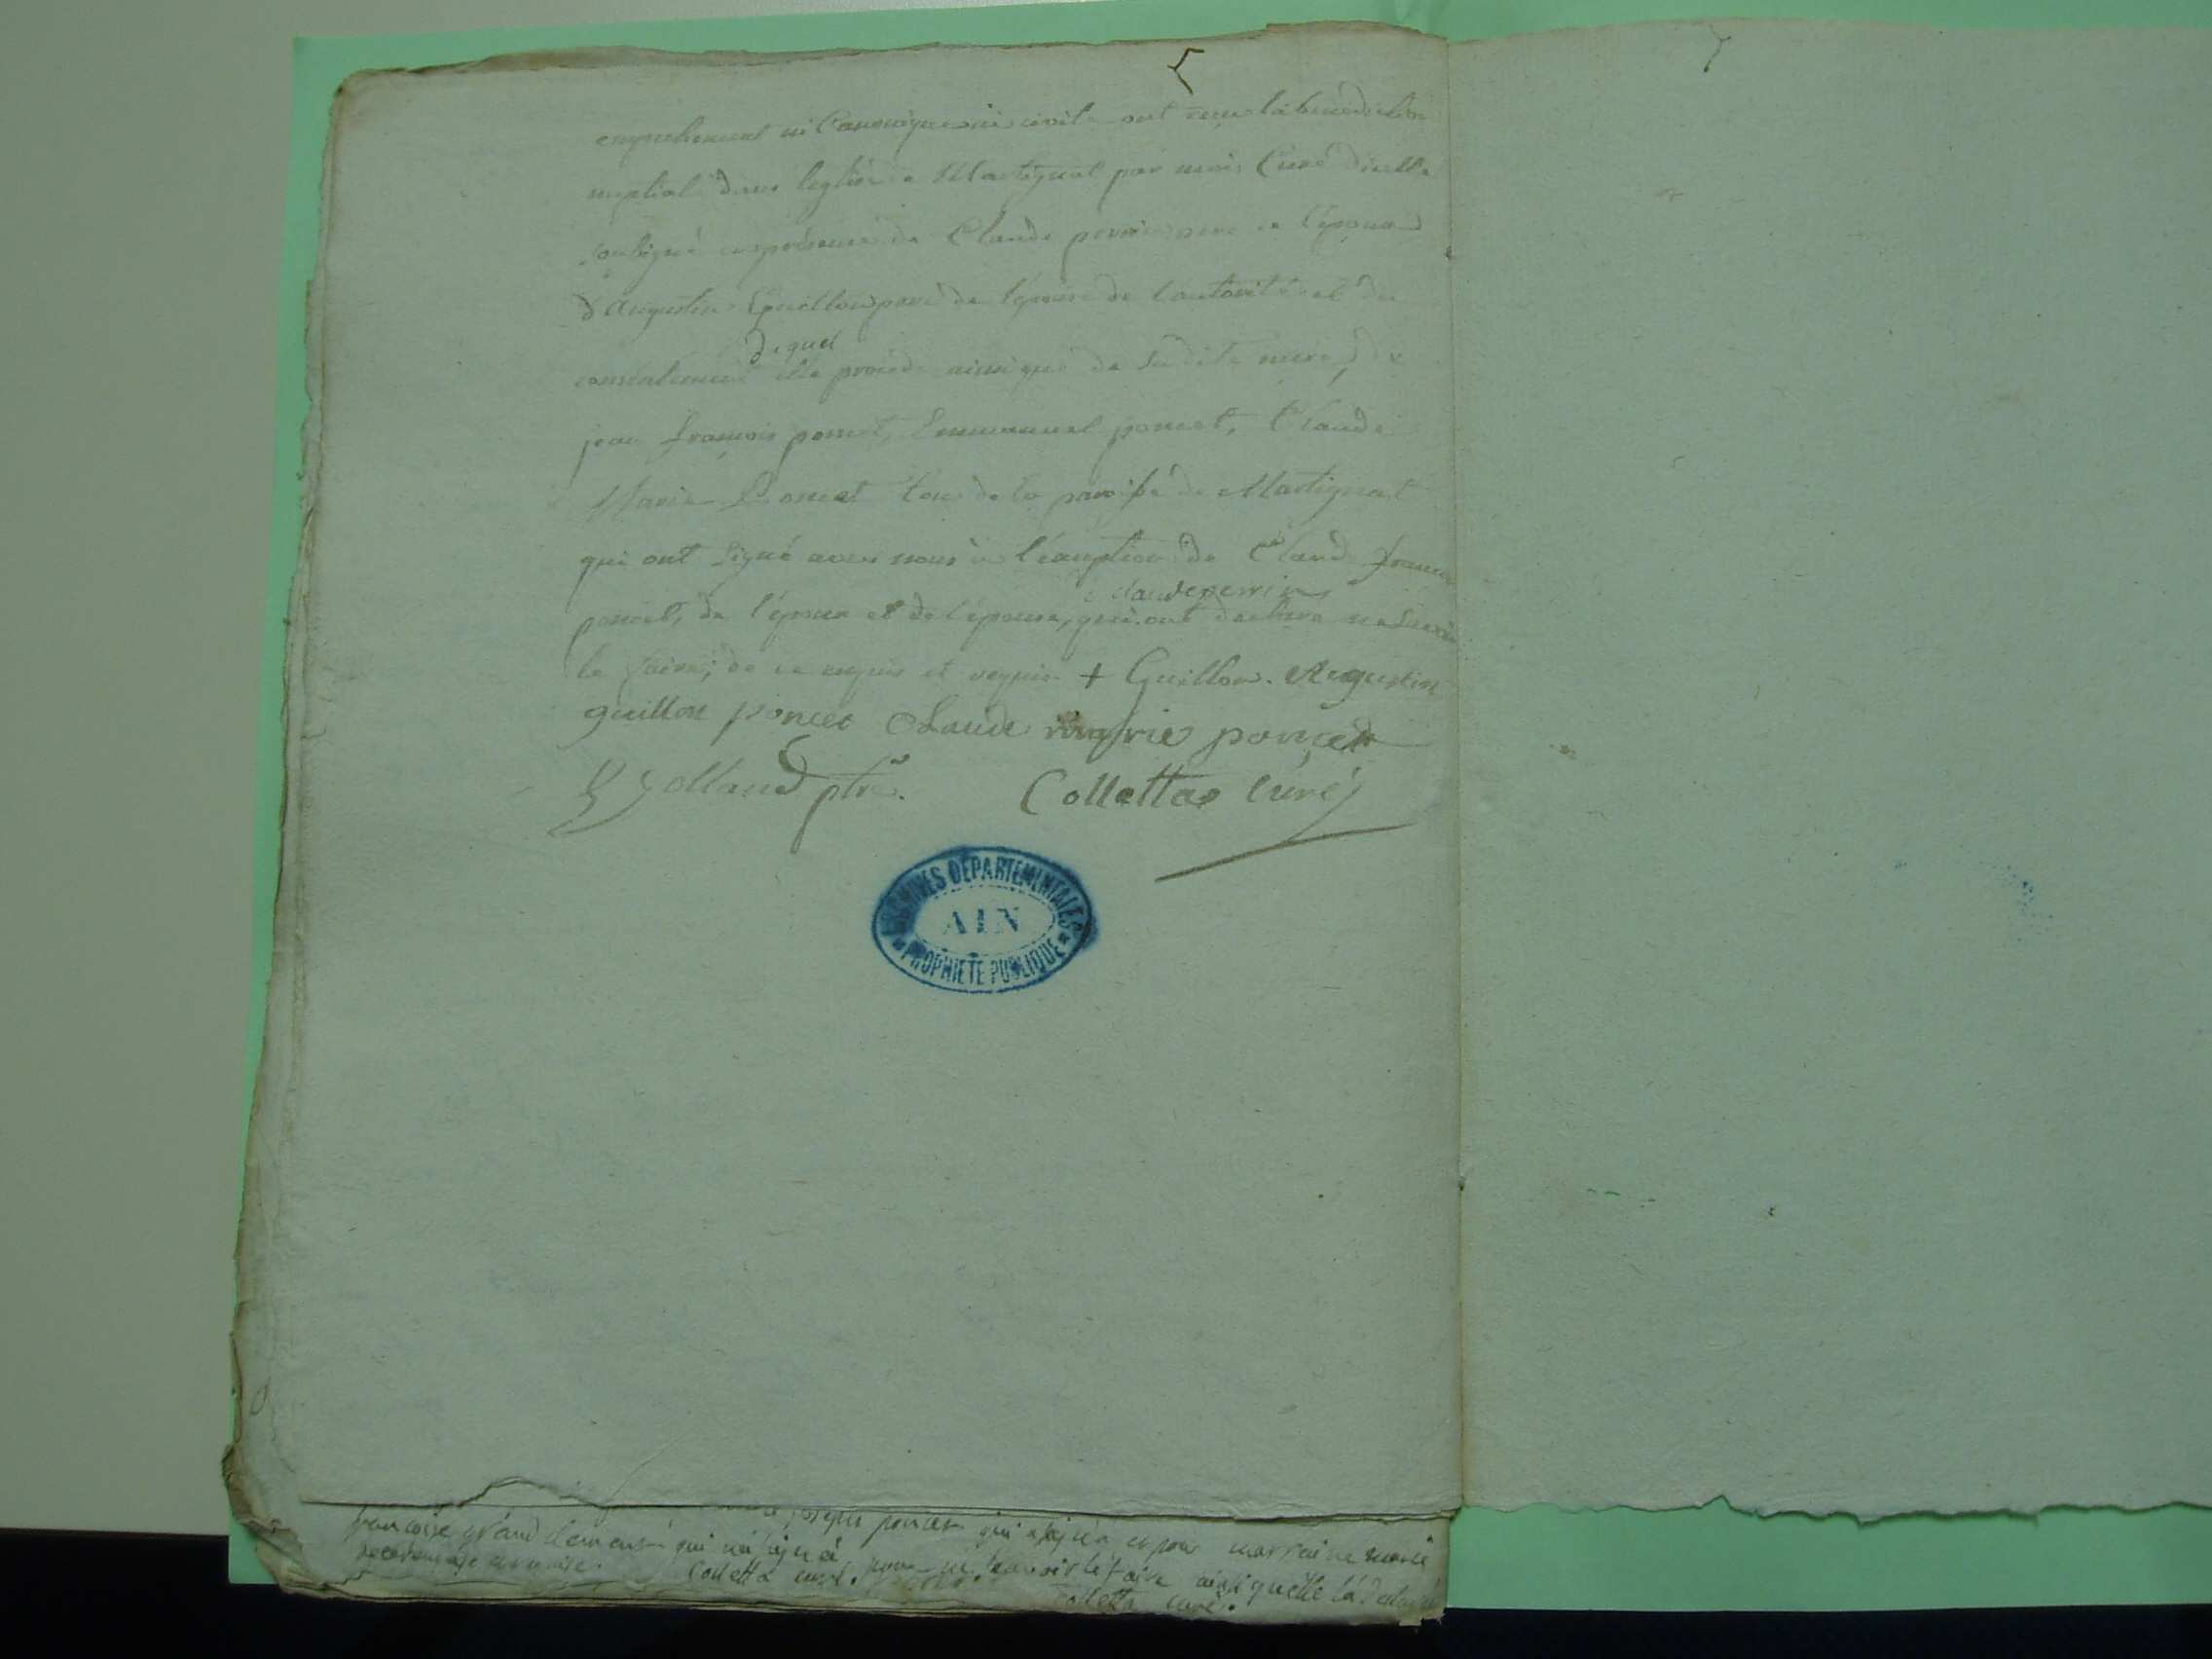 empechement ni Canonique ni civil ont reçu la benediction
nuptial dans leglise de Martignat par moi Curé d'icelle
soussigné en présence de Claude perrin pere de l'époux
d'Augustin Guillon pere de l'épouse de l'autorité et du
consentement duquel elle procede ainsi que de sa dite mere, de
jean François poncet, Emmanuel poncet, Claude
Marie Poncet tous de la paroisse de Martignat
qui ont signé avec nous a l'éxeption de Claud françois
claude perrin
poncet, de l'époux et de l'épouse, qui ont declaré ne savoir
le faire; de ce enquis et requis + Guillon. Augustin
guillon poncet Claude marie poncet
Jolland ptre. Colletta Curé
ARCHIVES DÉPARTEMENTALES
AIN
PROPRIÉTÉ PUBLIQUE
joseph poncet qui a signé et pour marraine marie
françoise grand clement qui n'a signé pour ne savoir le faire ainsi quelle la declaré
Colletta curé.
Colletta curé.